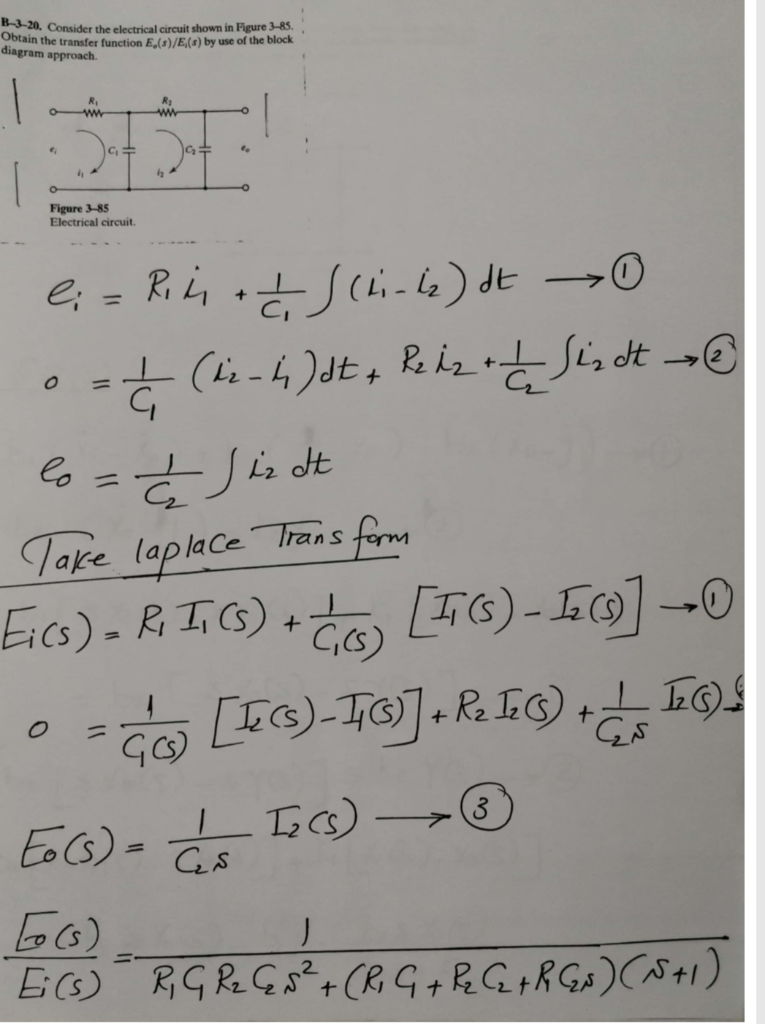 B-3-20. Consider the electrical circuit shown in Figure 3-85.
Obtain the transfer function Eₒ(s)/Eᵢ(s) by use of the block
diagram approach.
R₁ R₂
eᵢ C₁ C₂ eₒ
i₁ i₂
Figure 3-85
Electrical circuit.
eᵢ = R₁ i₁ + 1/C₁ ∫(i₁ - i₂) dt → ①
0 = 1/C₁ (i₂ - i₁) dt + R₂ i₂ + 1/C₂ ∫i₂ dt → ②
e₀ = 1/C₂ ∫ i₂ dt
Take laplace Transform
Ei(s) = R₁ I₁(s) + 1/C₁(s) [I₁(s) - I₂(s)] → ①
0 = 1/C₁(s) [I₂(s) - I₁(s)] + R₂ I₂(s) + 1/C₂s I₂(s)
E₀(s) = 1/C₂s I₂(s) → ③
E₀(s)/Ei(s) = 1/R₁C₁R₂C₂s² + (R₁C₁ + R₂C₂ + R₁C₂s)(s+1)